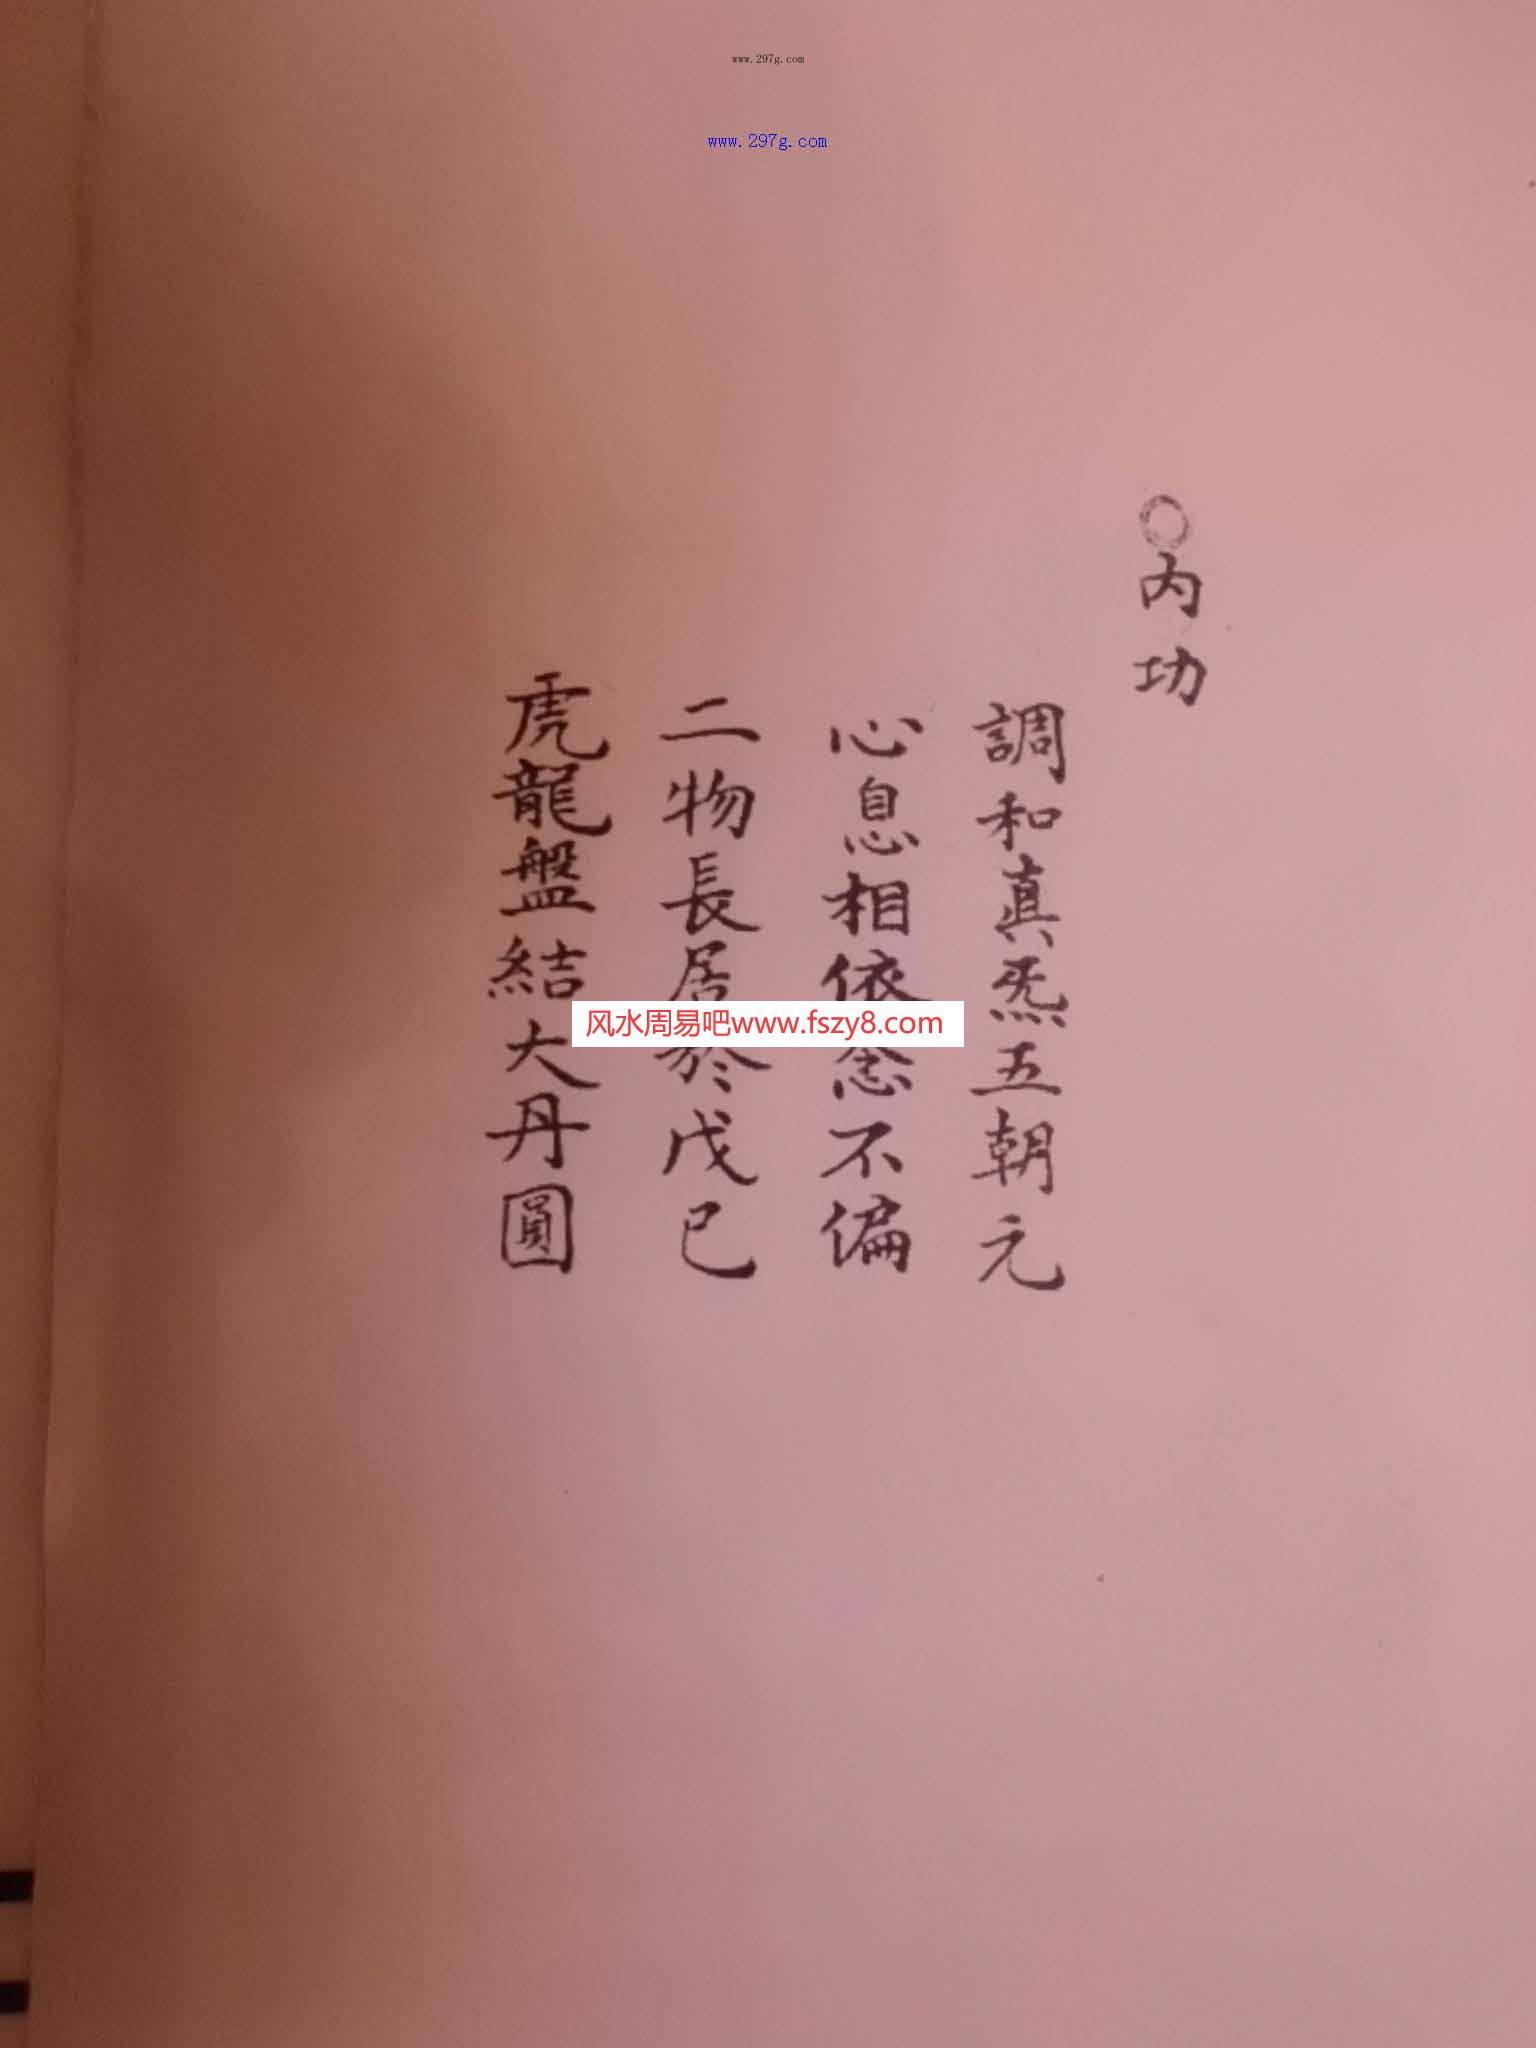 www.297g.com
www.297g.com
○内功
調和真炁五朝元
心息相依念不偏
二物長居於戊己
虎龍盤結大丹圓
风水周易吧www.fszy8.com